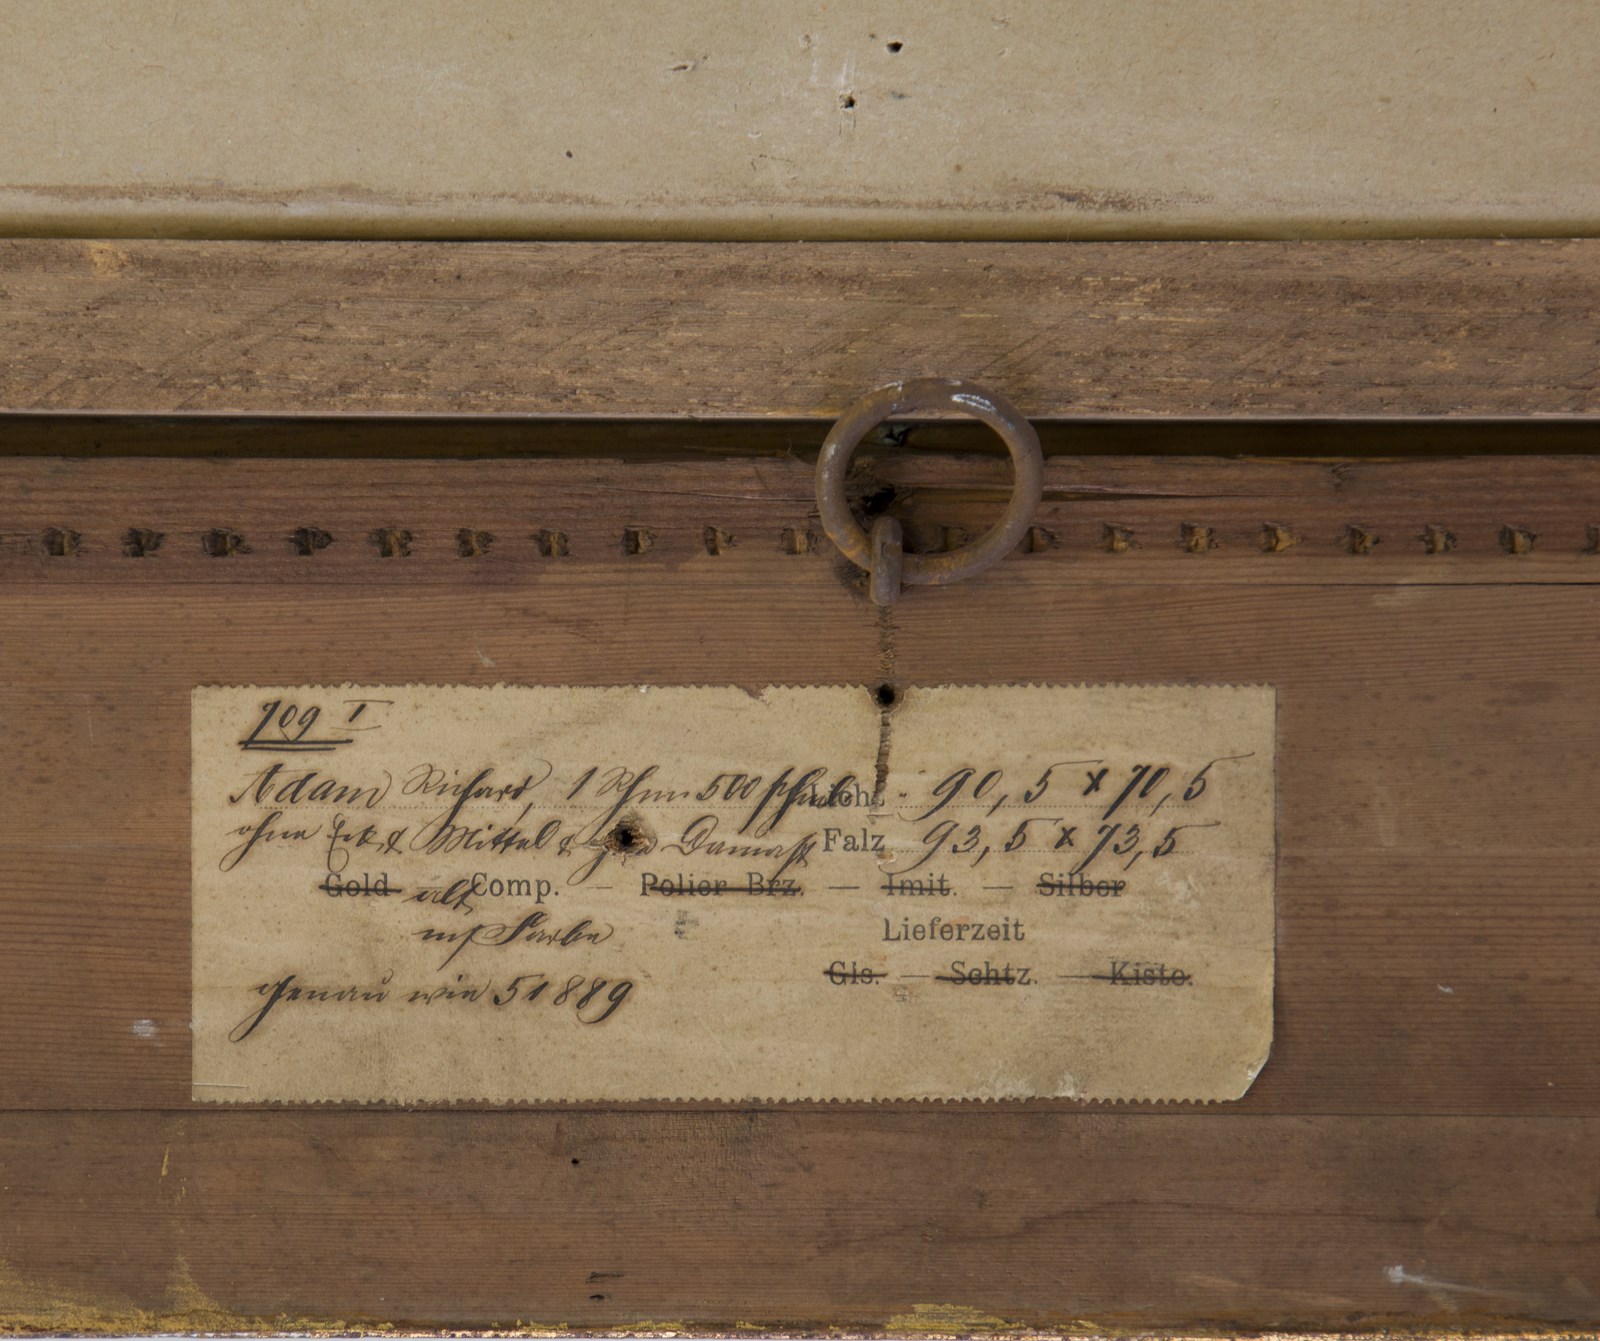 709 I
Adam Richard, 1 Rhm 500 Licht 90,5 x 70,5
ohne Eck & Mittel & Damast Falz 93,5 x 73,5
Gold alt Comp. — Polier Brz. — Imit. — Silber
Farbe Lieferzeit
Gls. — Schtz. — Kiste.
genau wie 51889